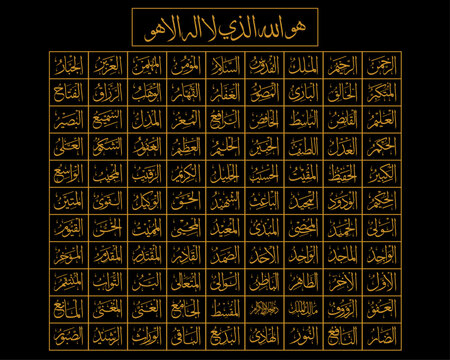 هو الله الذي لا اله الا هو
الرحمن الرحيم الملك القدوس السلام المؤمن المهيمن العزيز الجبار
المتكبر الخالق البارئ المصور الغفار القهار الوهاب الرزاق الفتاح
العليم القابض الباسط الخافض الرافع المعز المذل السميع البصير
الحكم العدل اللطيف الخبير الحليم العظيم الغفور الشكور العلي
الكبير الحفيظ المقيت الحسيب الجليل الكريم الرقيب المجيب الواسع
الحكيم الودود المجيد الباعث الشهيد الحق الوكيل القوي المتين
الولي الحميد المحصي المبدئ المعيد المحيي المميت الحي القيوم
الواجد الماجد الواحد الاحد الصمد القادر المقتدر المقدم المؤخر
الاول الاخر الظاهر الباطن الوالي المتعالي البر التواب المنتقم
العفو الرؤوف مالك الملك ذو الجلال والاكرام المقسط الجامع الغني المغني المانع
الضار النافع النور الهادي البديع الباقي الوارث الرشيد الصبور